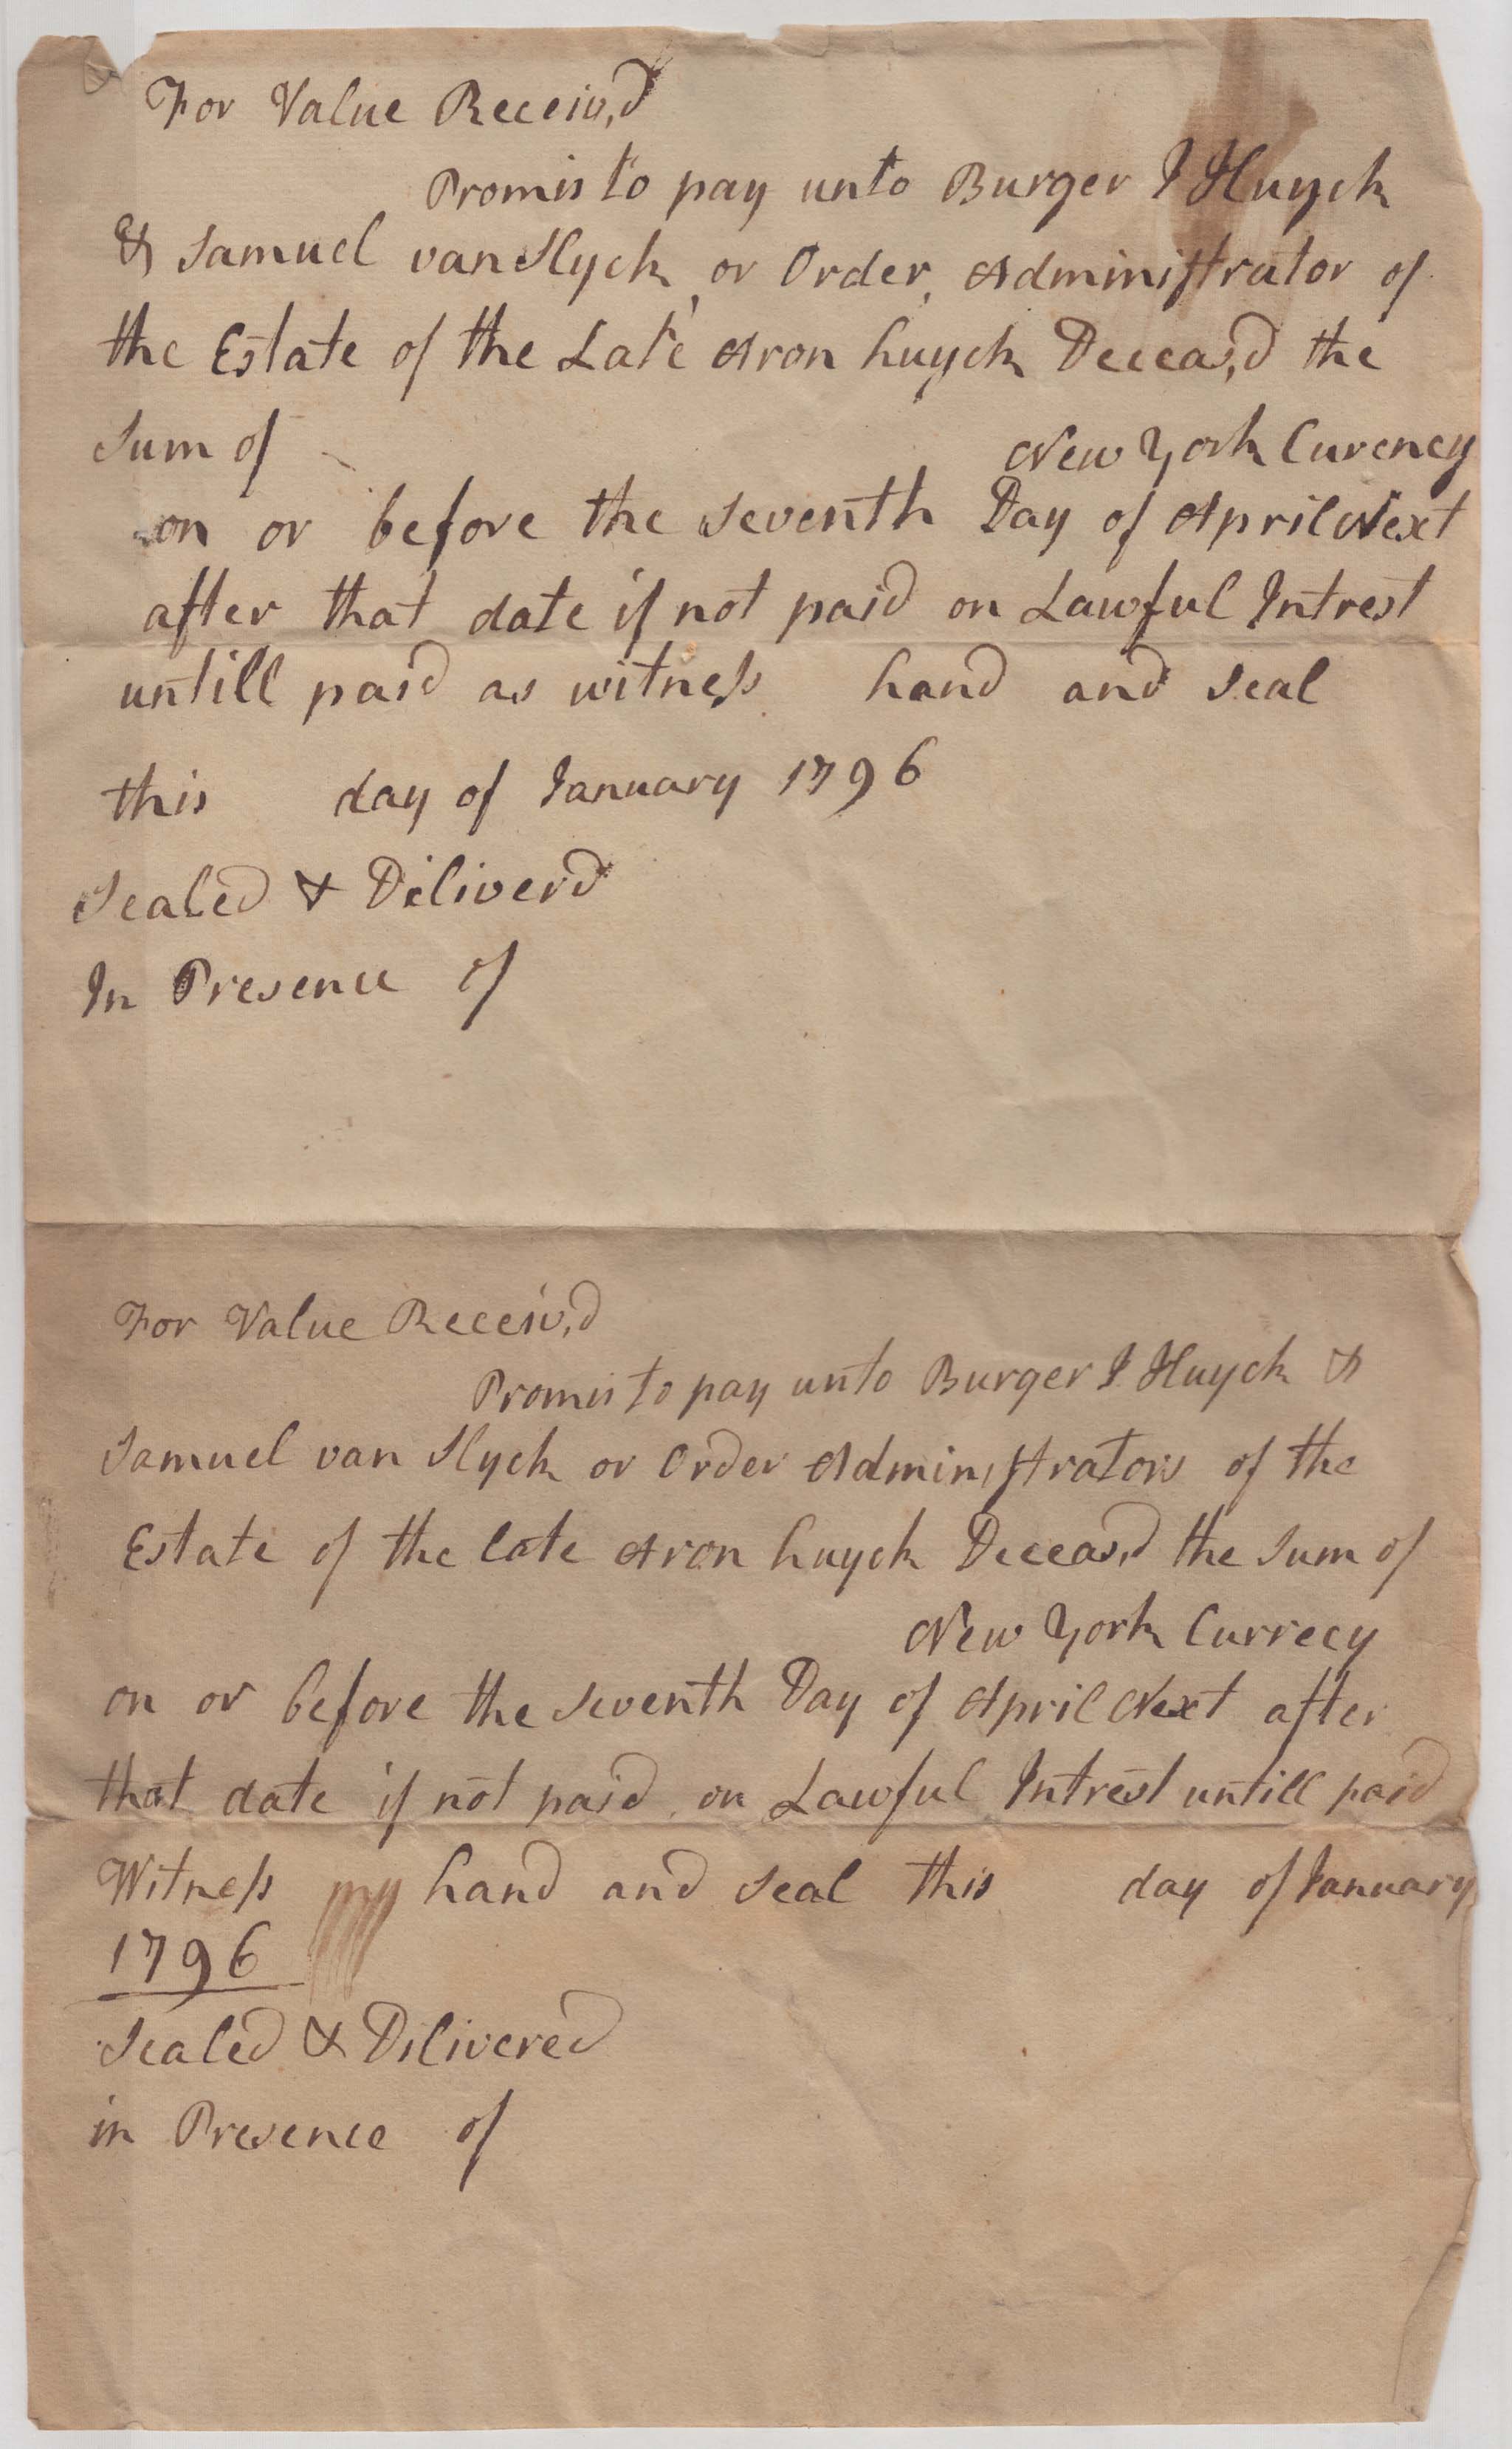 For Value Receiv,d
Promis to pay unto Burger I Huyck
& Samuel van Slyck, or Order, Administrator of
the Estate of the Late Aron huyck Deceas,d the
Sum of New York Curency
on or before the Seventh Day of April Next
after that date if not paid on Lawful Intrest
untill paid as witness hand and Seal
this day of January 1796
Sealed & Diliverd
In Presence of
For Value Receiv,d
Promis to pay unto Burger I Huyck &
Samuel van Slyck or Order Administrators of the
Estate of the late Aron huyck Deceas,d the Sum of
New York Currecy
on or before the Seventh Day of April Next after
that date if not paid on Lawful Intrest untill paid
Witness my hand and Seal this day of January
1796
Sealed & Dilivered
in Presence of